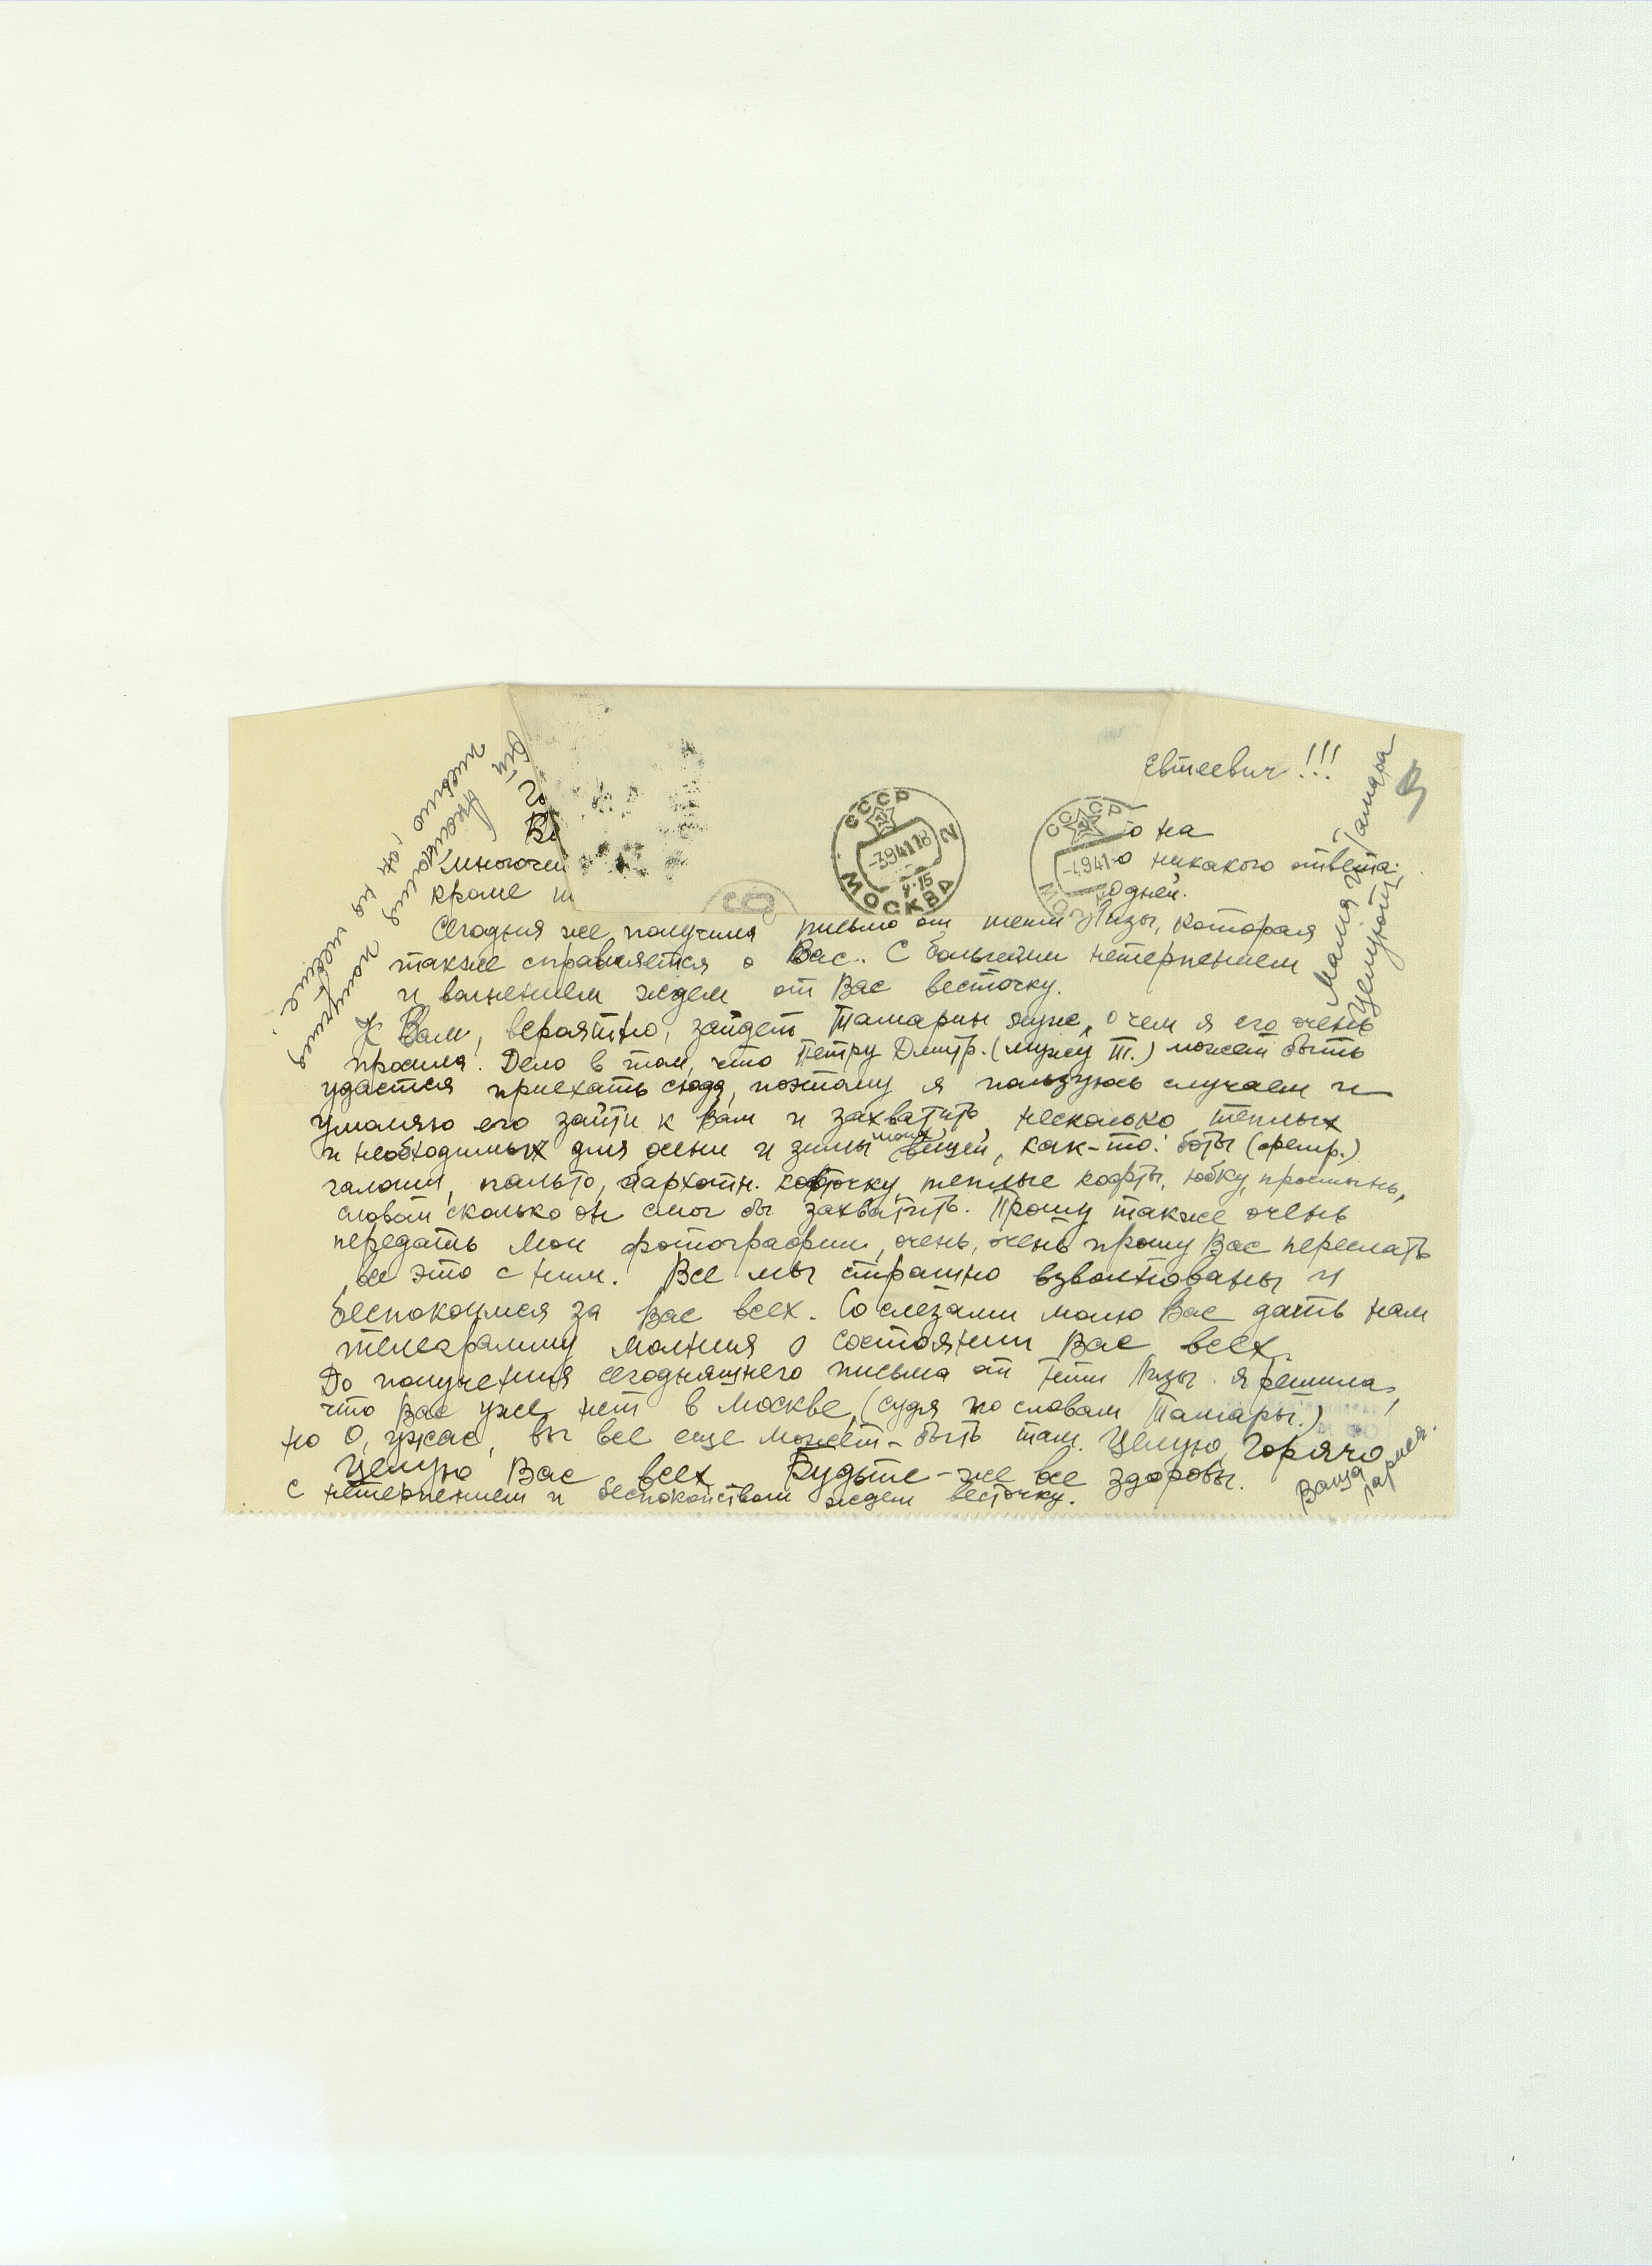 Евтеевич!!!
о на
многочи
о никакого ответа,
кроме
одней.
Сегодня же получила письмо от тети Лизы, которая
также справляется о Вас.. С большим нетерпением
и волнением ждем от Вас весточку.
К Вам, вероятно, зайдет Тамарин муж, о чем я его очень
просила. Дело в том, что Петру Дмитр. (мужу Т.) может быть
удастся приехать сюда, поэтому я пользуюсь случаем и
умоляю его зайти к Вам и захватить, несколько теплых
и необходимых для осени и зимы моих вещей, как-то: боты (фетр.)
галоши, пальто, бархатн. кофточку, теплые кофты, юбку, простынь,
словом сколько он смог бы захватить. Прошу также очень
передать мои фотографии, очень, очень прошу Вас переслать
все это с ним. Все мы страшно взволнованы и
беспокоимся за Вас всех. Со слезами молю Вас дать нам
телеграмму молния о состоянии Вас всех.
До получения сегодняшнего письма от тети Лизы я решила,
что Вас уже нет в Москве, (судя по словам Тамары.)
но О, ужас, вы все еще может-быть там. Целую, горячо
целую Вас всех. Будьте-же все здоровы.
с нетерпением и беспокойством ждем весточку.
Ваша
Мама и Тамара
целуют
от
письмо
получила
СССР
МОСКВА
-3941 18
СССР
-4941